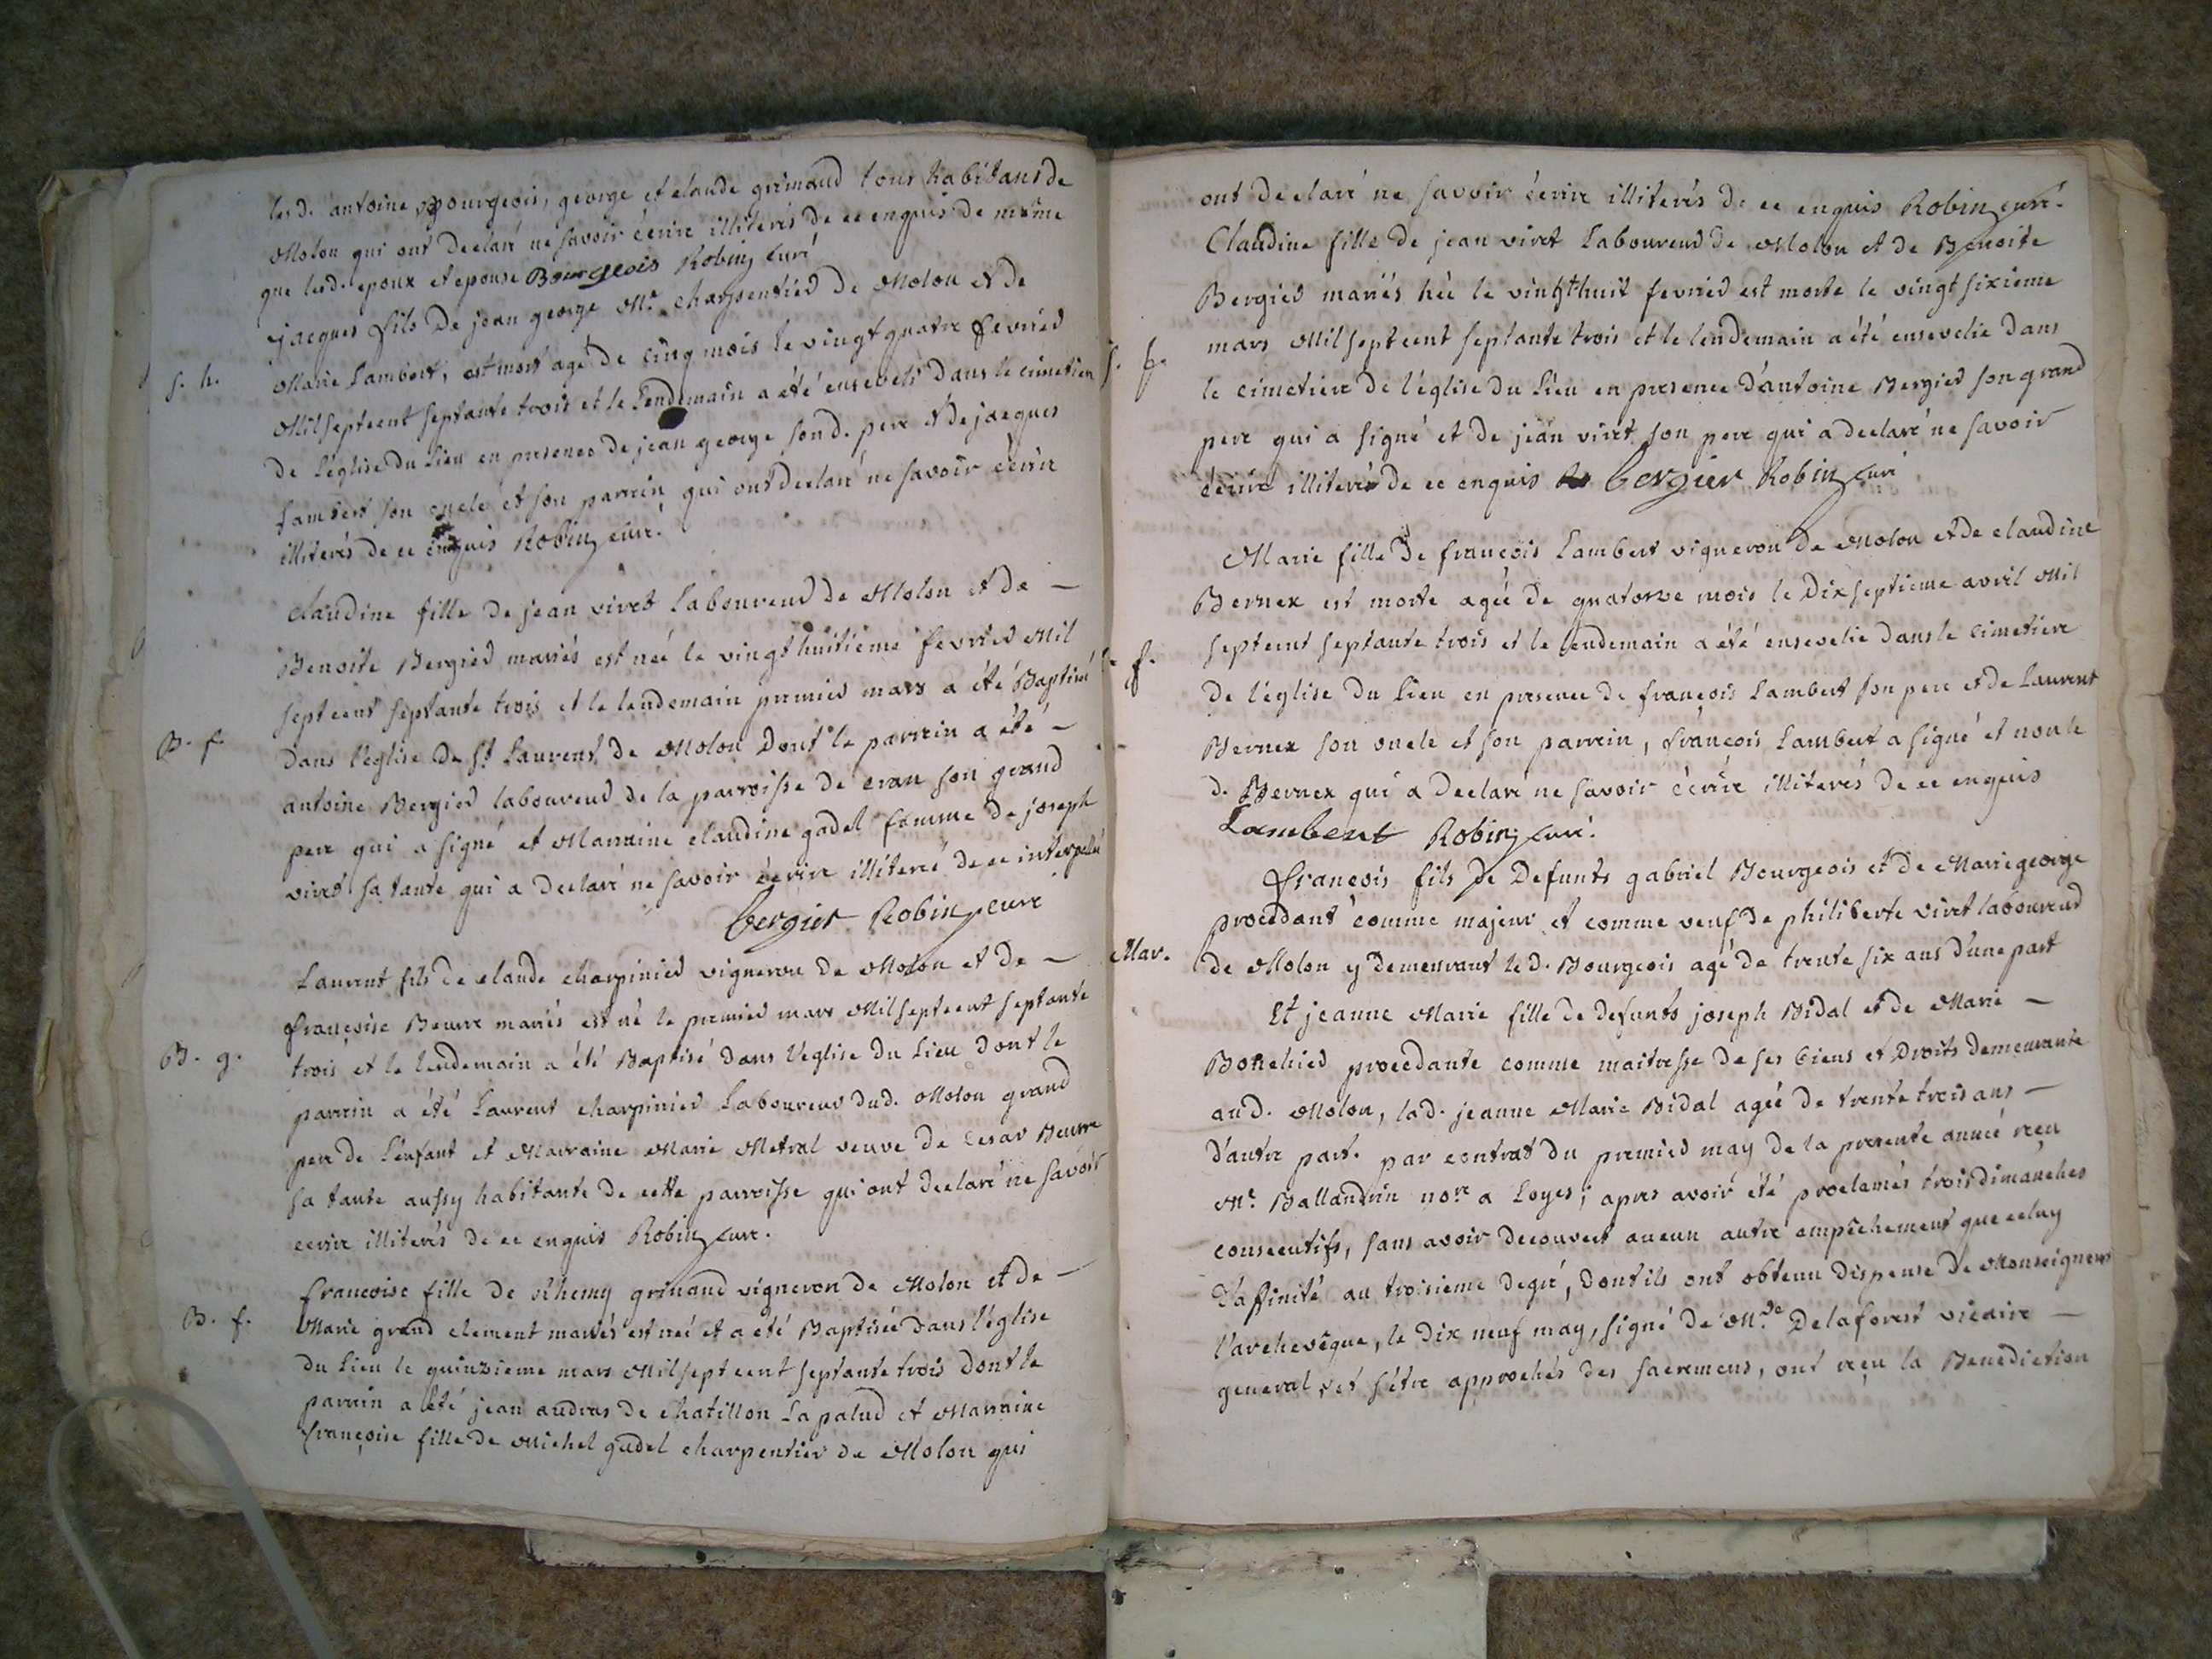 lesd. antoine Bourgeois, george et claude grimaud tous habitans de
Molon qui ont declaré ne savoir écrire illiterés de ce enquis de même
que lesd. epoux et epouse Bourgeois Robin curé
jacques fils De jean george Mc. charpentier de Molon et de
S. h.
Marie Lambert, est mort agé de cinq mois le vingt quatre fevrier
Mil septcent septante trois et le lendemain a été enseveli dans le cimetiere
de l'église du Lieu en presence de jean george sond. pere et de jacques
Lambert son oncle et son parrein qui ont declaré ne savoir écrire
illiterés de ce enquis Robin curé.
Claudine fille de jean viret Laboureur de Molon et de —
Benoite Bergier mariés est née le vingt huitieme fevrier Mil
septcent septante trois et le lendemain premier mars a été Baptisée
B. f.
Dans l'église de St Laurent de Molon Dont le parrein a été —
antoine Bergier laboureur de la parroisse de cran son grand
pere qui a signé et Marraine claudine gadel femme de joseph
viret sa tante qui a declaré ne savoir écrire illiteré de ce interpellé
bergier Robin curé
Laurent fils de claude charpinier vigneron de Molon et de —
françoise Beurre mariés est né le premier mars Mil septcent septante
B. g.
trois, et le lendemain a été Baptisé dans l'église du Lieu dont le
parrein a été Laurent charpinier Laboureur dud. Molon grand
pere de L'enfant et Marraine Marie Metral veuve de Cesar Beurre
sa tante aussy habitante de cette parroisse qui ont declaré ne savoir
écrire illiterés de ce enquis Robin curé.
B. f.
francoise fille de Rhemy grinand vigneron de Molon et de —
Marie grand clement mariés est neé et a été Baptisée dans l'église
du Lieu le quinzieme mars Mil sept cent septante trois Dont le
parrein a été jean audras de chatillon La palud et Marraine
françoise fille de Michel gadel charpentier de Molon qui
ont declaré ne savoir écrire illiterés de ce enquis Robin curé.
Claudine fille de jean viret Laboureur de Molon et de Benoite
Bergier mariés née le vingt huit fevrier est morte le vingt sixieme
S. f.
mars Mil septcent septante trois et le lendemain a été ensevelie dans
le cimetiere de l'église du Lieu en presence d'antoine Bergier son grand
pere qui a signé et de jean viret son pere qui a declaré ne savoir
écrire illiteré de ce enquis bergier Robin curé
Marie fille de françois Lambert vigneron de Molon et de claudine
Bernex est morte agée de quatorze mois le Dix septieme avril Mil
S. f.
septcent septante trois et le lendemain a été ensevelie dans le cimetiere
de l'église du Lieu en presence de françois Lambert son pere et de Laurent
Bernex son oncle et son parrein, françois Lambert a signé et non le
d. Bernex qui a declaré ne savoir écrire illiterés de ce enquis
Lambert Robin curé.
françois fils de Defunts gabriel Bourgeois et de Marie george
procedant comme majeur et comme veuf de philiberte viret laboureur
Mar.
de Molon y demeurant led. Bourgeois agé de trente six ans d'une part
Et jeanne Marie fille de defunts joseph Bidal et de Marie —
Bonehier procedante comme maitresse de ses biens et droits demeurante
aud. Molon, lad. jeanne Marie Bidal agée de trente trois ans —
d'autre part. par contrat du premier may de la presente année reçu
Me. Ballandrin nore a Loyes; apres avoir été proclamés trois dimanches
consecutifs, sans avoir decouvert aucun autre empêchement que celuy
d'affinité au troisieme degré, dont ils ont obtenu dispense de Monseigneur
l'archevêque, le dix neuf may, signé de Mr. De la forest vicaire —
general, et s'être approchés des sacremens, ont reçu la Benediction